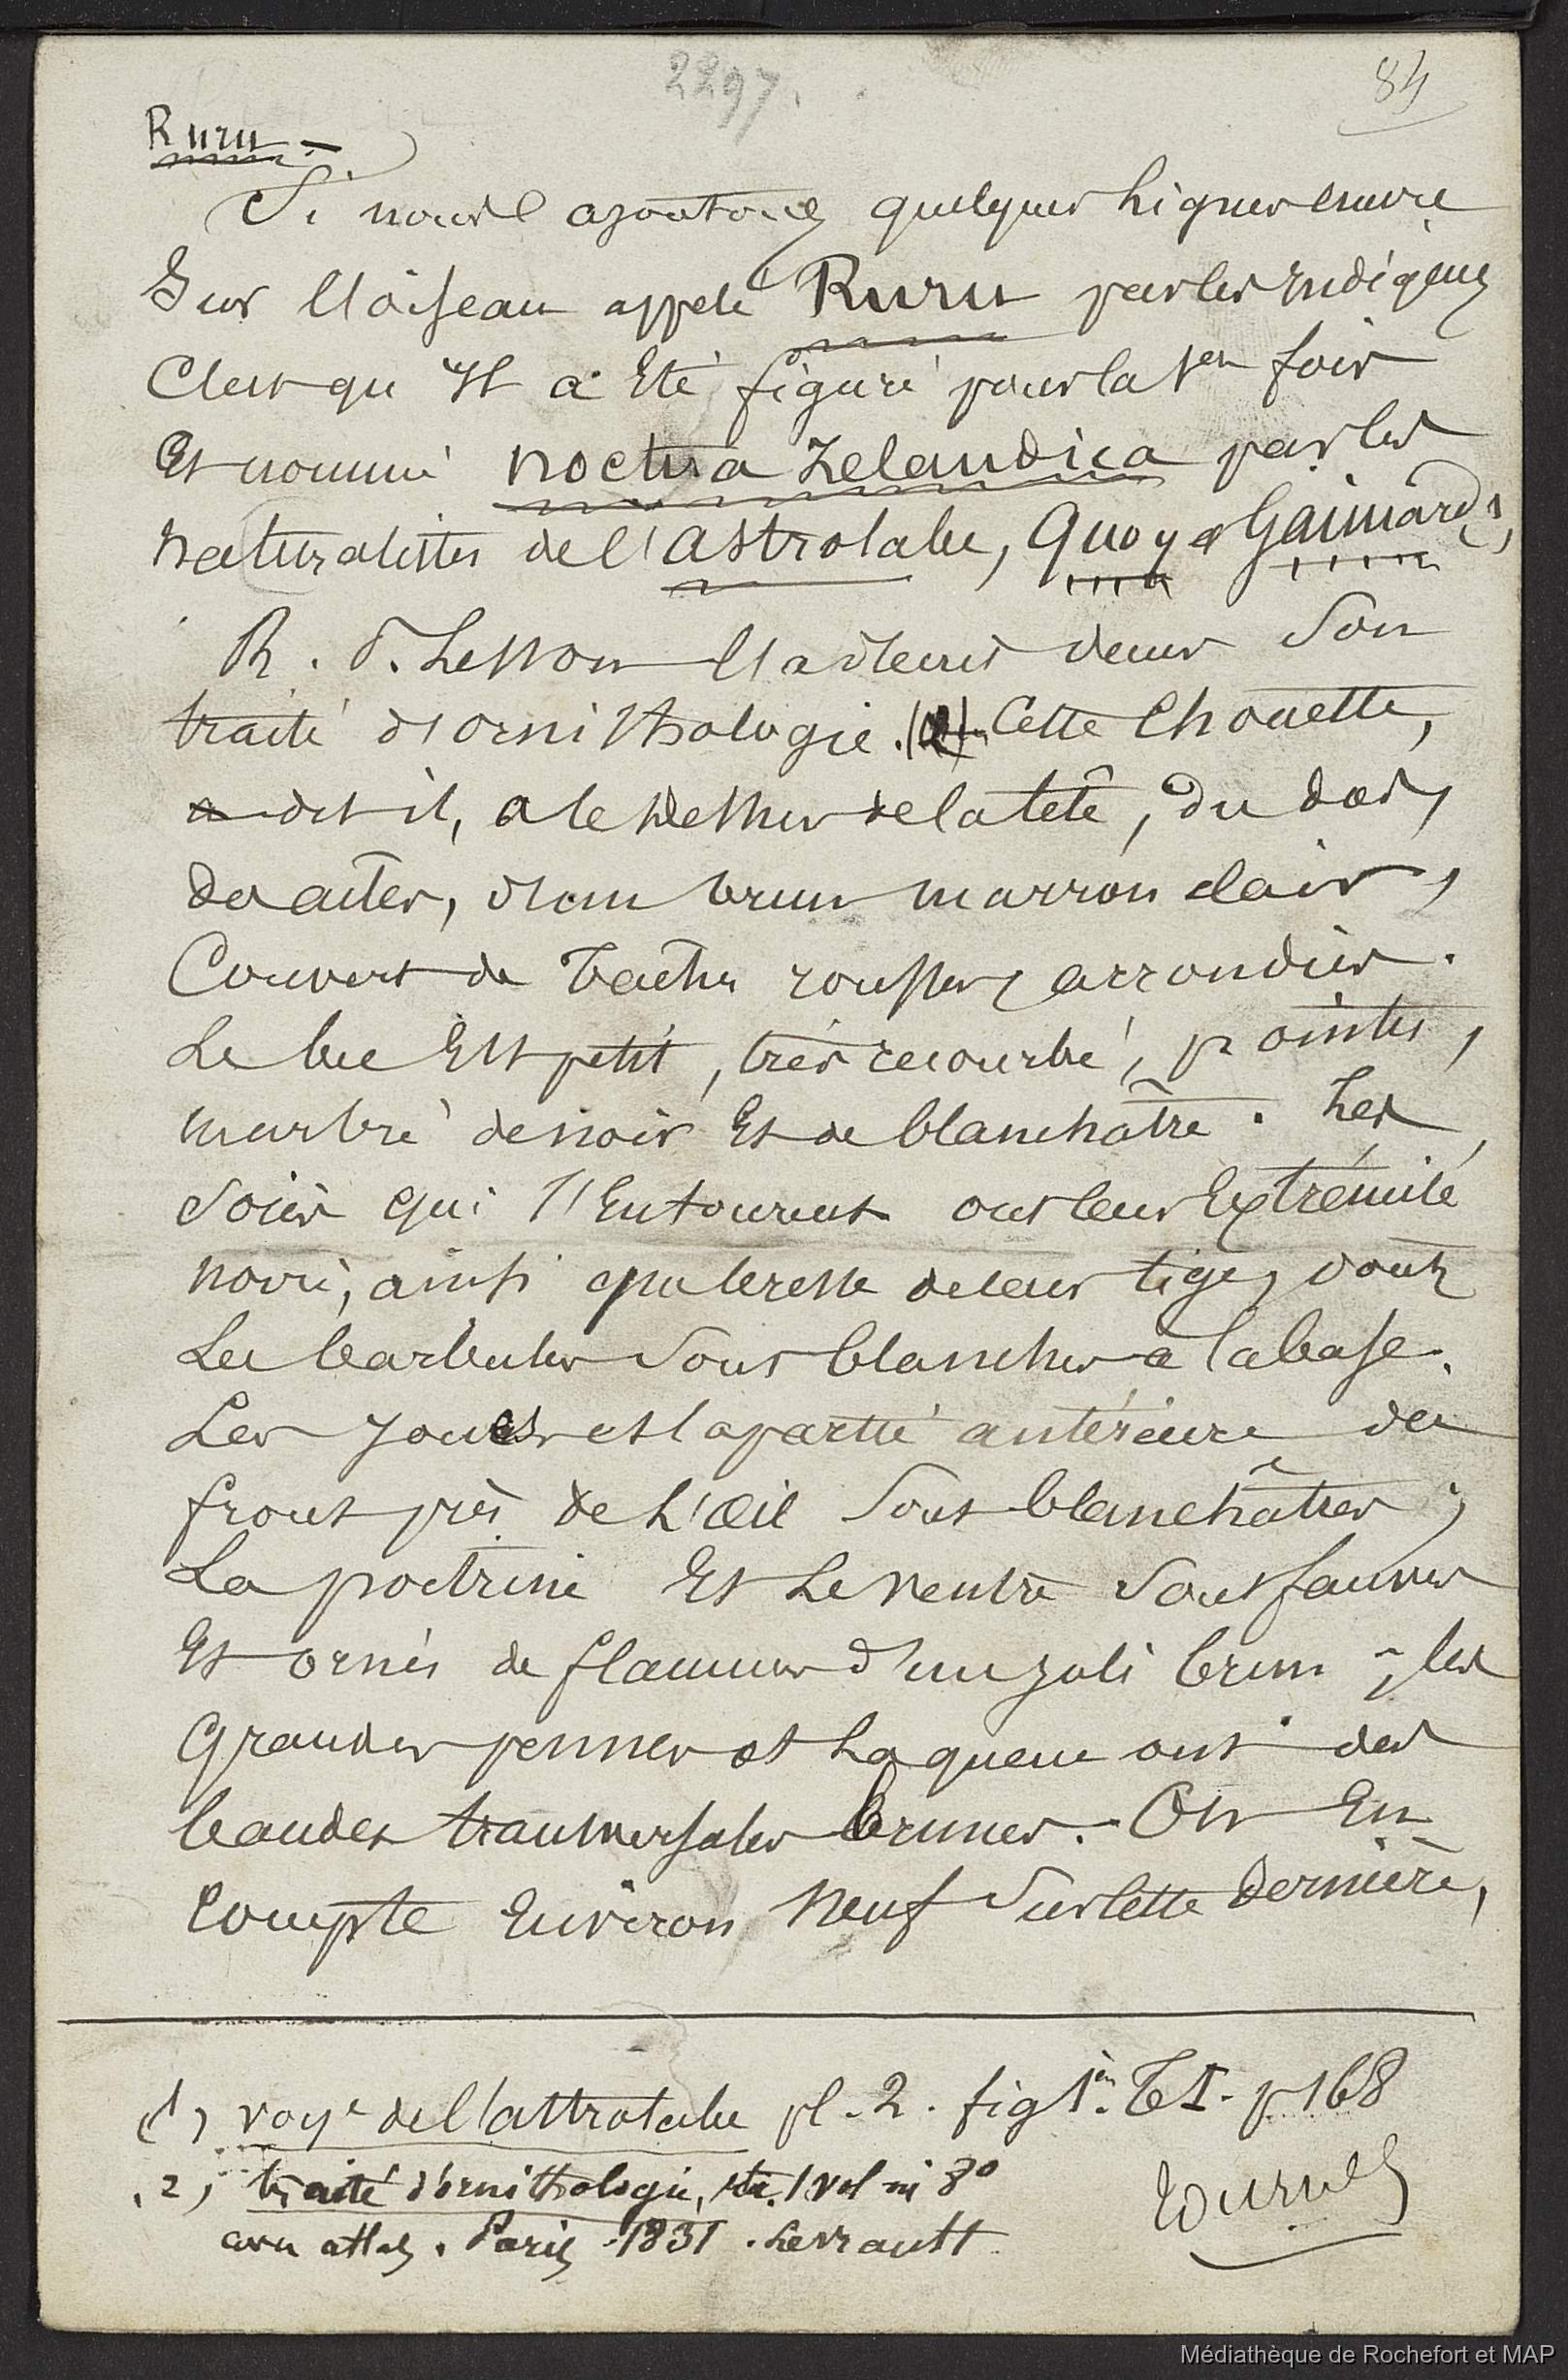 2297.
84
Ruru -
Si nous ajoutons quelques lignes encore
Sur l'oiseau appelé Ruru par les indigènes
C'est qu'il a Eté figuré pour la 1ere fois
Et nommé noctua Zelandica par les
naturalistes de l'astrolabe, Quoy et Gaimard,
R. P. Lesson l'a décrit dans Son
traité d'ornithologie. (2) Cette Chouette,
dit il, a le dessus de la tête, du dos,
des ailes, d'un brun marron clair,
Couvert de taches rousses, arrondies.
Le bec Est petit, très recourbé, pointu,
marbré de noir Et de blanchâtre. Les
Soies qui l'Entourent ont leur Extrémité
noire, ainsi que le reste de leur tige, dont
Les barbules Sont blanches à la base.
Les joues et la partie antérieure du
front près de L'œil Sont blanchâtres ;
La poitrine Et Le ventre Sont fauves
Et ornés de flammes d'un joli brun ; les
Grandes pennes et La queue ont des
bandes transversales brunes. - On En
Compte Environ neuf Sur cette dernière,
(1) voye de l'astrolabe pl. 2. fig 1ere. T I. p 168
(2) traité d'ornithologie, etc. 1 vol in 8°
avec atlas. Paris. 1831. Levrault